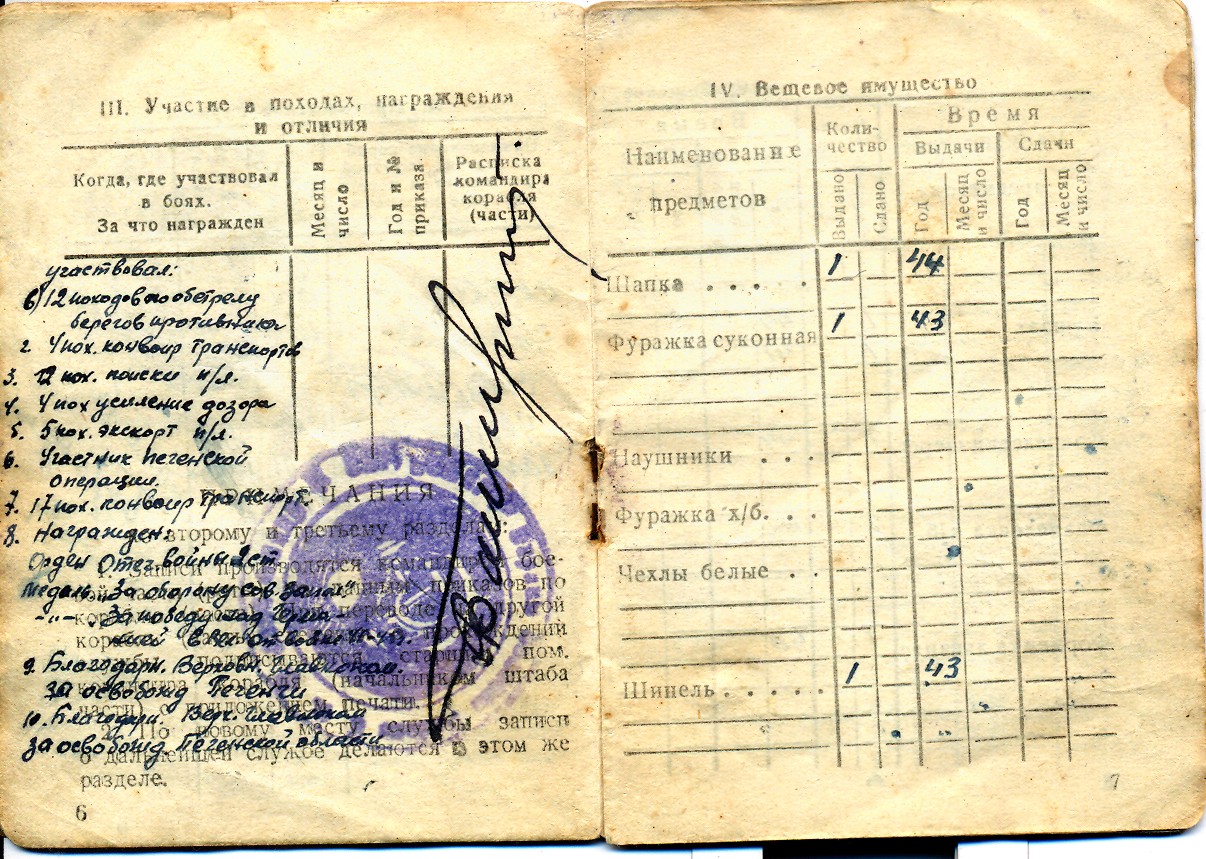 III. Участие в походах, награждения
и отличия
Когда, где участвовал
в боях.
За что награжден
Месяц и
число
Год и №
приказа
Расписка
командира
корабля
(части)
участвовал:
12 походов по обстрелу
берегов противника
2. 4 пох. конвоир транспортов
3. 12 пох. поиски п/л.
4. 4 пох усиление дозора
5. 5 пох. экскорт п/л.
6. Участник печенской
операции.
7. 17 пох. конвоир транспорт.
ПРИМЕЧАНИЯ
8. Награжден:
второму и третьему раздела:
Орден Отеч. войны 2 ст
1. Записи производятся командиром бое-
Медаль "За оборону сов. Запол"
приказов по
-"- За победу над Гер
переводе другой
9. Благодарн. Верховн. главноком.
старшим пом.
за освобожд Печенги
(начальником штаба
части) с приложением печати.
10. Благодарн. Верх. главноком
2. По новому месту службы записи
за освобожд. Печенской области
о дальнейшей службе делаются в этом же
разделе.
6
IV. Вещевое имущество
Наименование
предметов
Коли-
чество
Время
Выдачи
Сдачи
Выдано
Сдано
Год
Месяц
и число
Год
Месяц
и число
Шапка . . . . . 1 44
Фуражка суконная 1 43
Наушники . . .
Фуражка х/б. . .
Чехлы белые . .
Шинель . . . . . 1 43
7